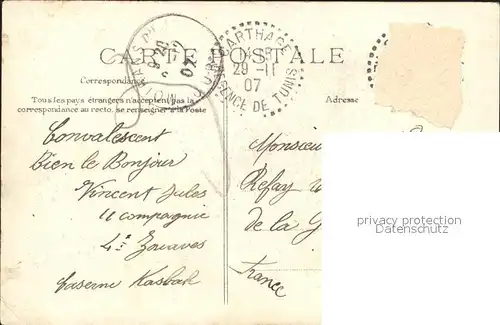 CARTE POSTALE
CARTHAGE
29 -11
07
RÉGENCE DE TUNIS
Correspondance
Tous les pays étrangers n'acceptent pas la
correspondance au recto, se renseigner à la Poste
Adresse
Convalescent
bien le Bonjour
Vincent Jules
11 compagnie
4e Zouaves
Caserne Kasbah
Monsieur
Refay
de la G
France
privacy protection
Datenschutz